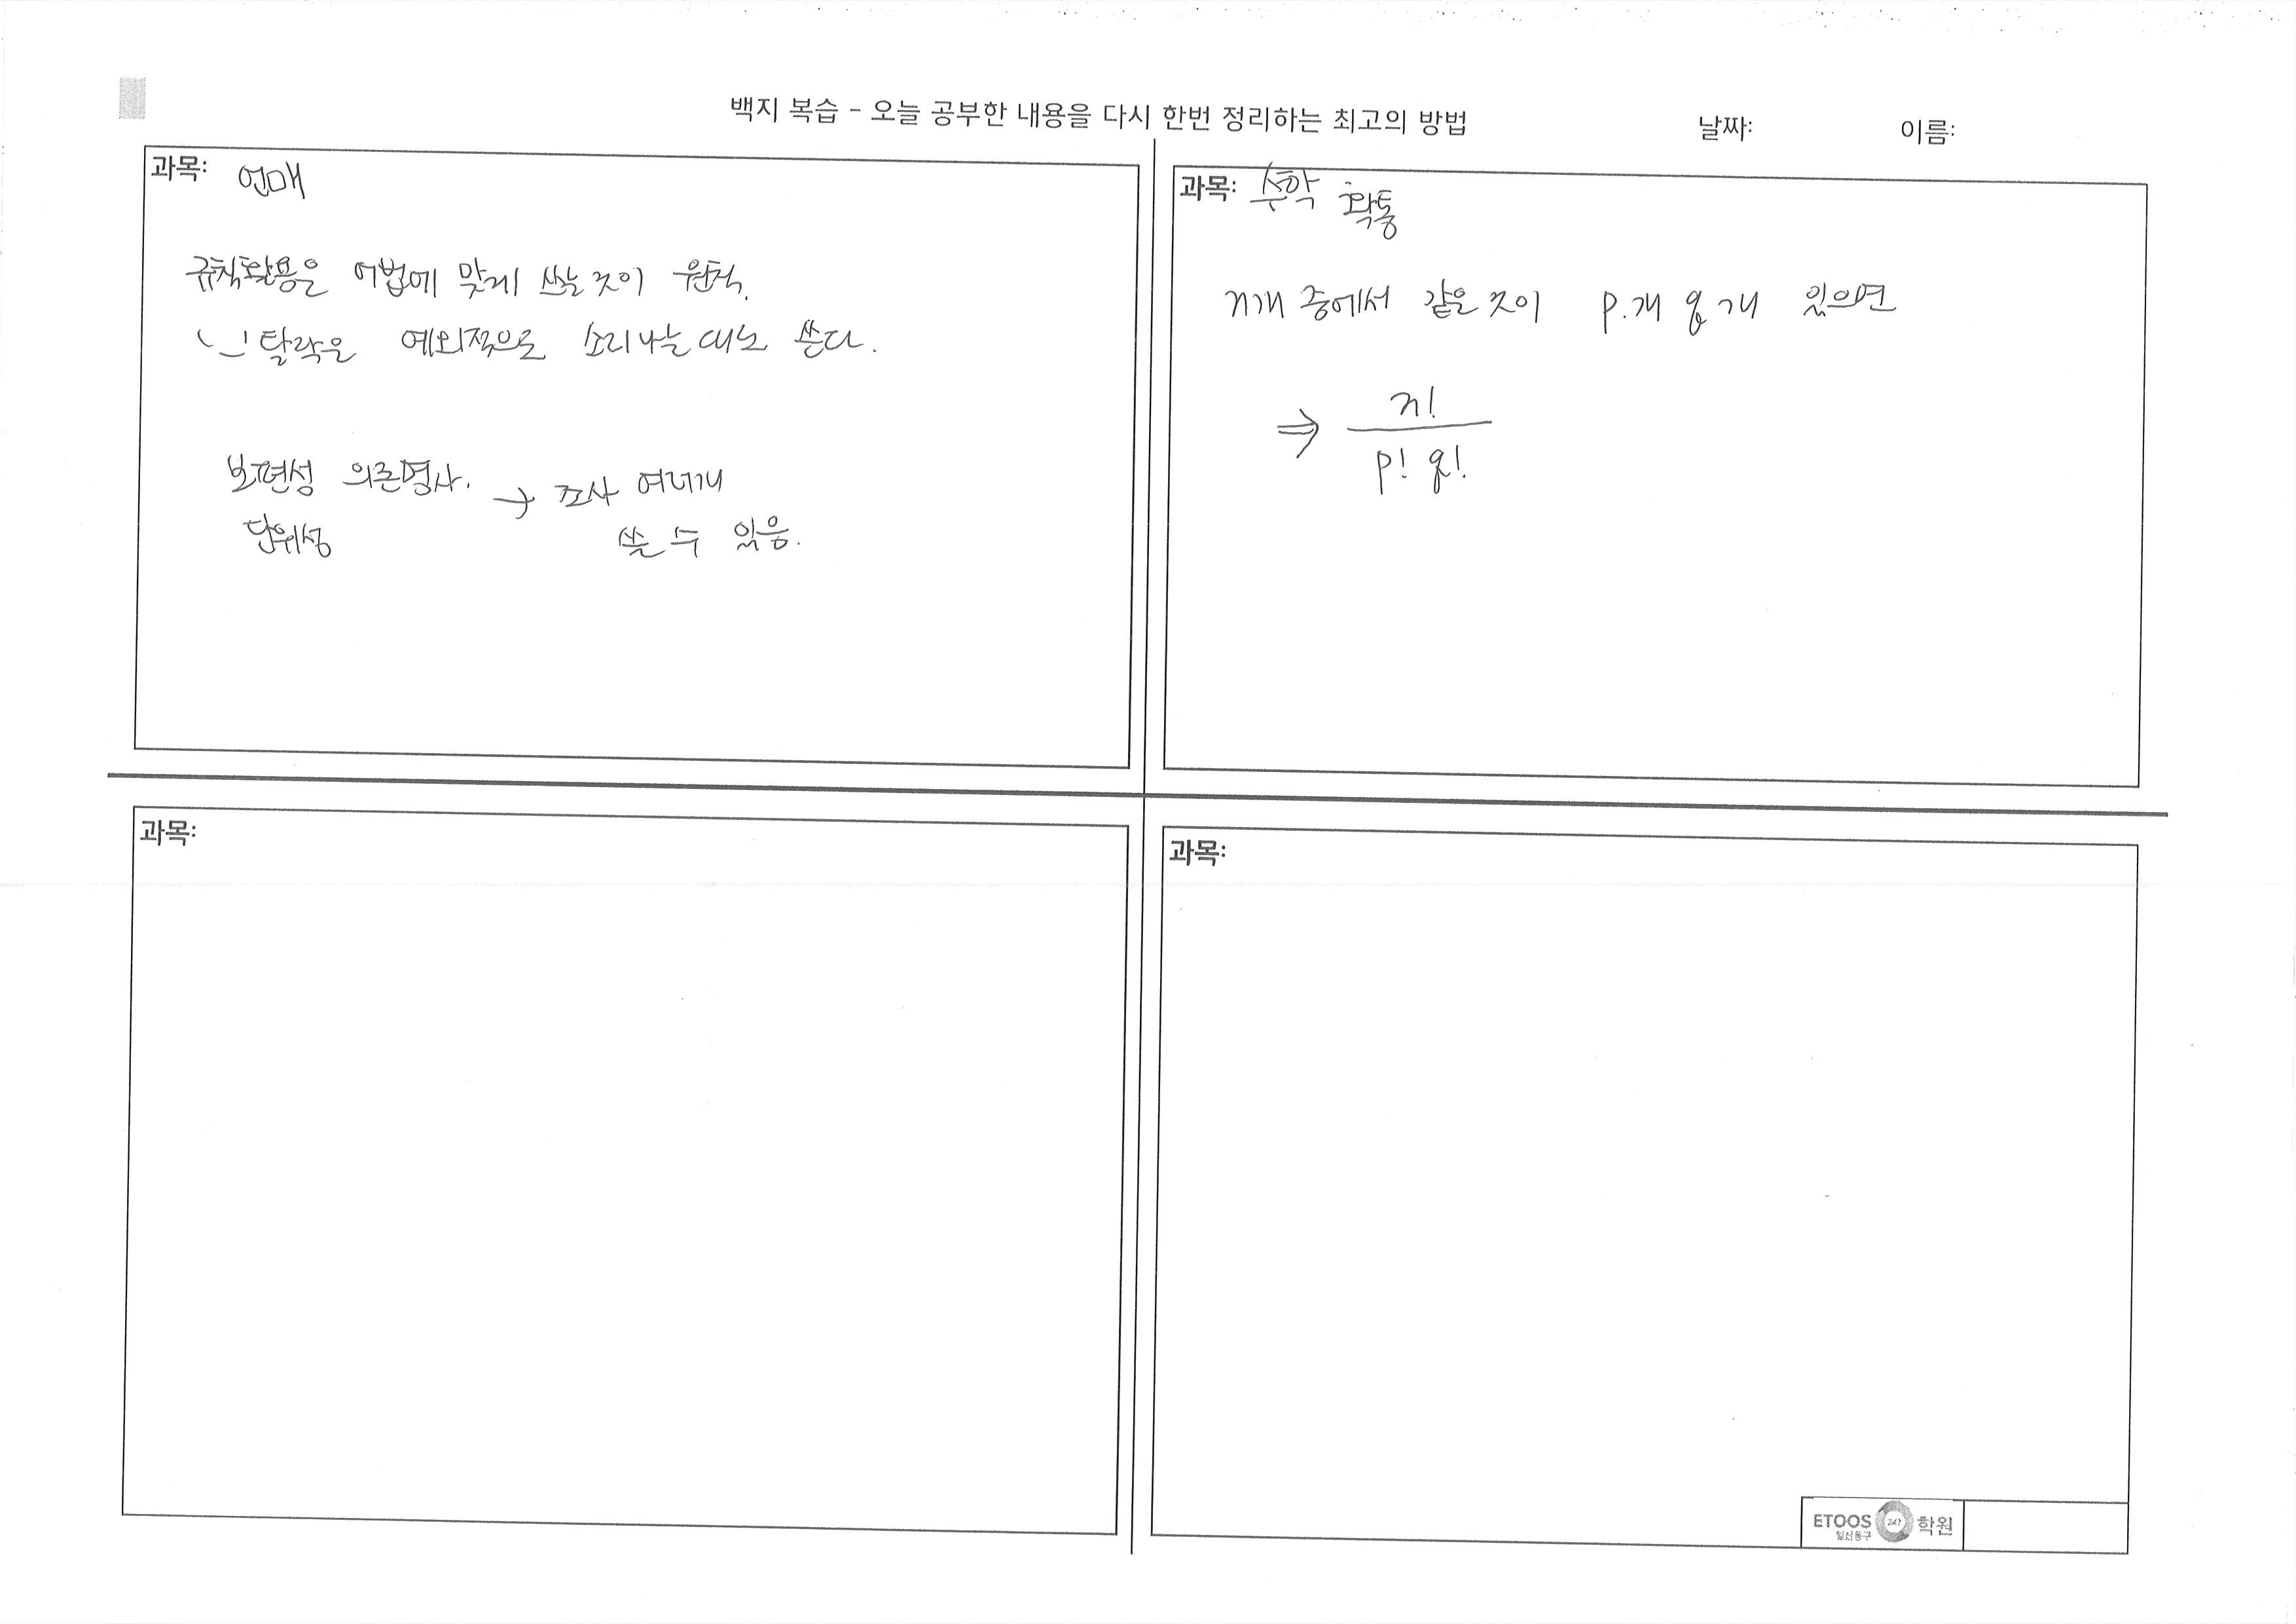 백지 복습 - 오늘 공부한 내용을 다시 한번 정리하는 최고의 방법
날짜:
이름:
과목: 언매
규칙활용은 어법에 맞게 쓰는 것이 원칙.
'ㅡ' 탈락은 예외적으로 소리나는 대로 쓴다.
보편성 의존명사. → 조사 여러개
단위성 쓸 수 있음.
과목: 수학 확통
n개 중에서 같은 것이 p.개 q개 있으면
⇒ n!
p! q!
과목:
과목:
ETOOS 247 학원
일산동구